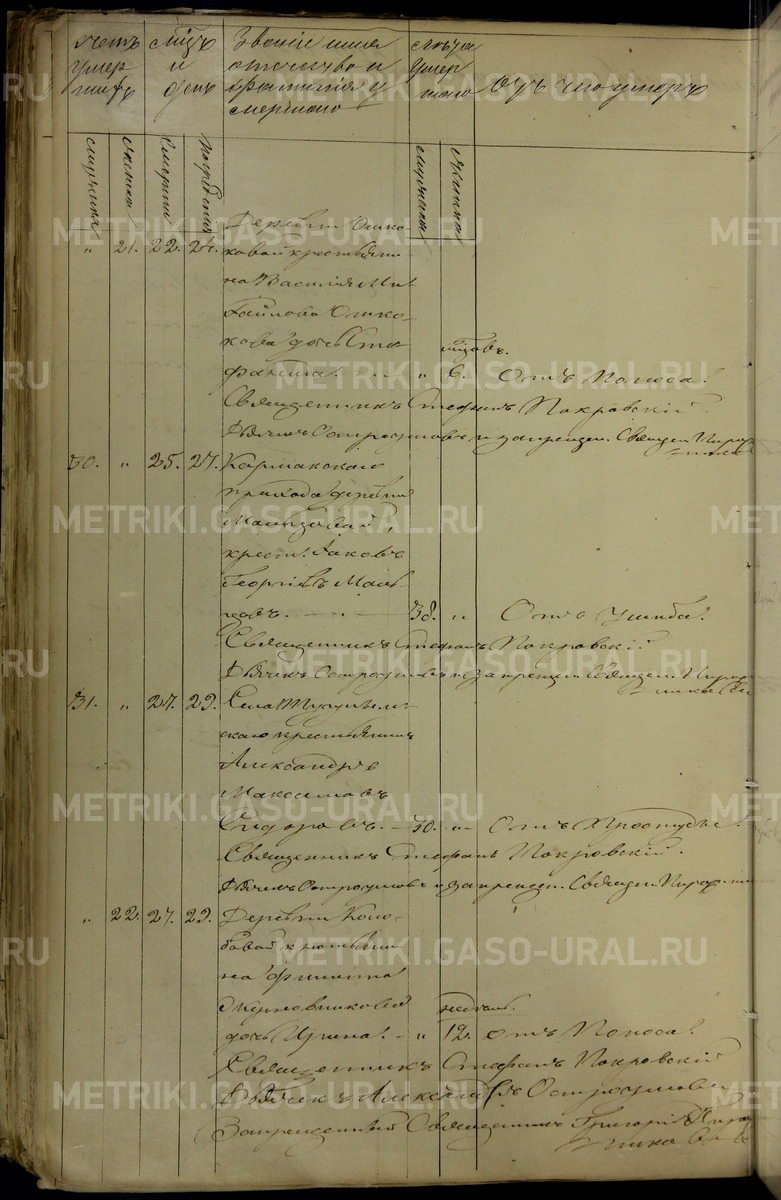 Счетъ умершихъ
мѣсяцъ и день
Званіе имя отчество и фамилія умершаго
лѣта умершаго
Отъ чего умеръ
мужеска
женска
смерти
погребенія
мужеска
женска
„ 21. 22. 24.
Деревни
крестьяни-
на Василія Ми-
хайлова
дочь
мѣсяцовъ.
„ 6. Отъ Поноса.
Священникъ Стефанъ Покровскій.
Дьячекъ Остроумовъ и запрещен. Священ. Пирож-
никовъ
30. „ 25. 27. Кармакскаго
прихода деревни
Мальцовой,
крест. Іаковъ
Георгіевъ Маль-
цовъ. 38. „ Отъ Ушиба.
Священникъ Стефанъ Покровскій
Дьячекъ Остроумовъ и запрещен. Священ. Пирож-
никовъ
31. „ 27. 29. Села Тугулым-
скаго крестьянинъ
Александръ
Максимовъ
Сидоровъ. 50. „ Отъ Простуды.
Священникъ Стефанъ Покровскій.
Дьячекъ Остроумовъ и запрещен. Священ. Пирож
„ 22. 27. 29. Деревни Коло-
бовой крестьяни-
на Филиппа
недѣль.
дочь Ирина. „ 12. отъ Поноса.
Священникъ Стефанъ Покровскій
Дьячекъ Алексѣй Остроумовъ
Запрещенный Священникъ Григорій Пирож-
никовъ
METRIKI.GASO-URAL.RU